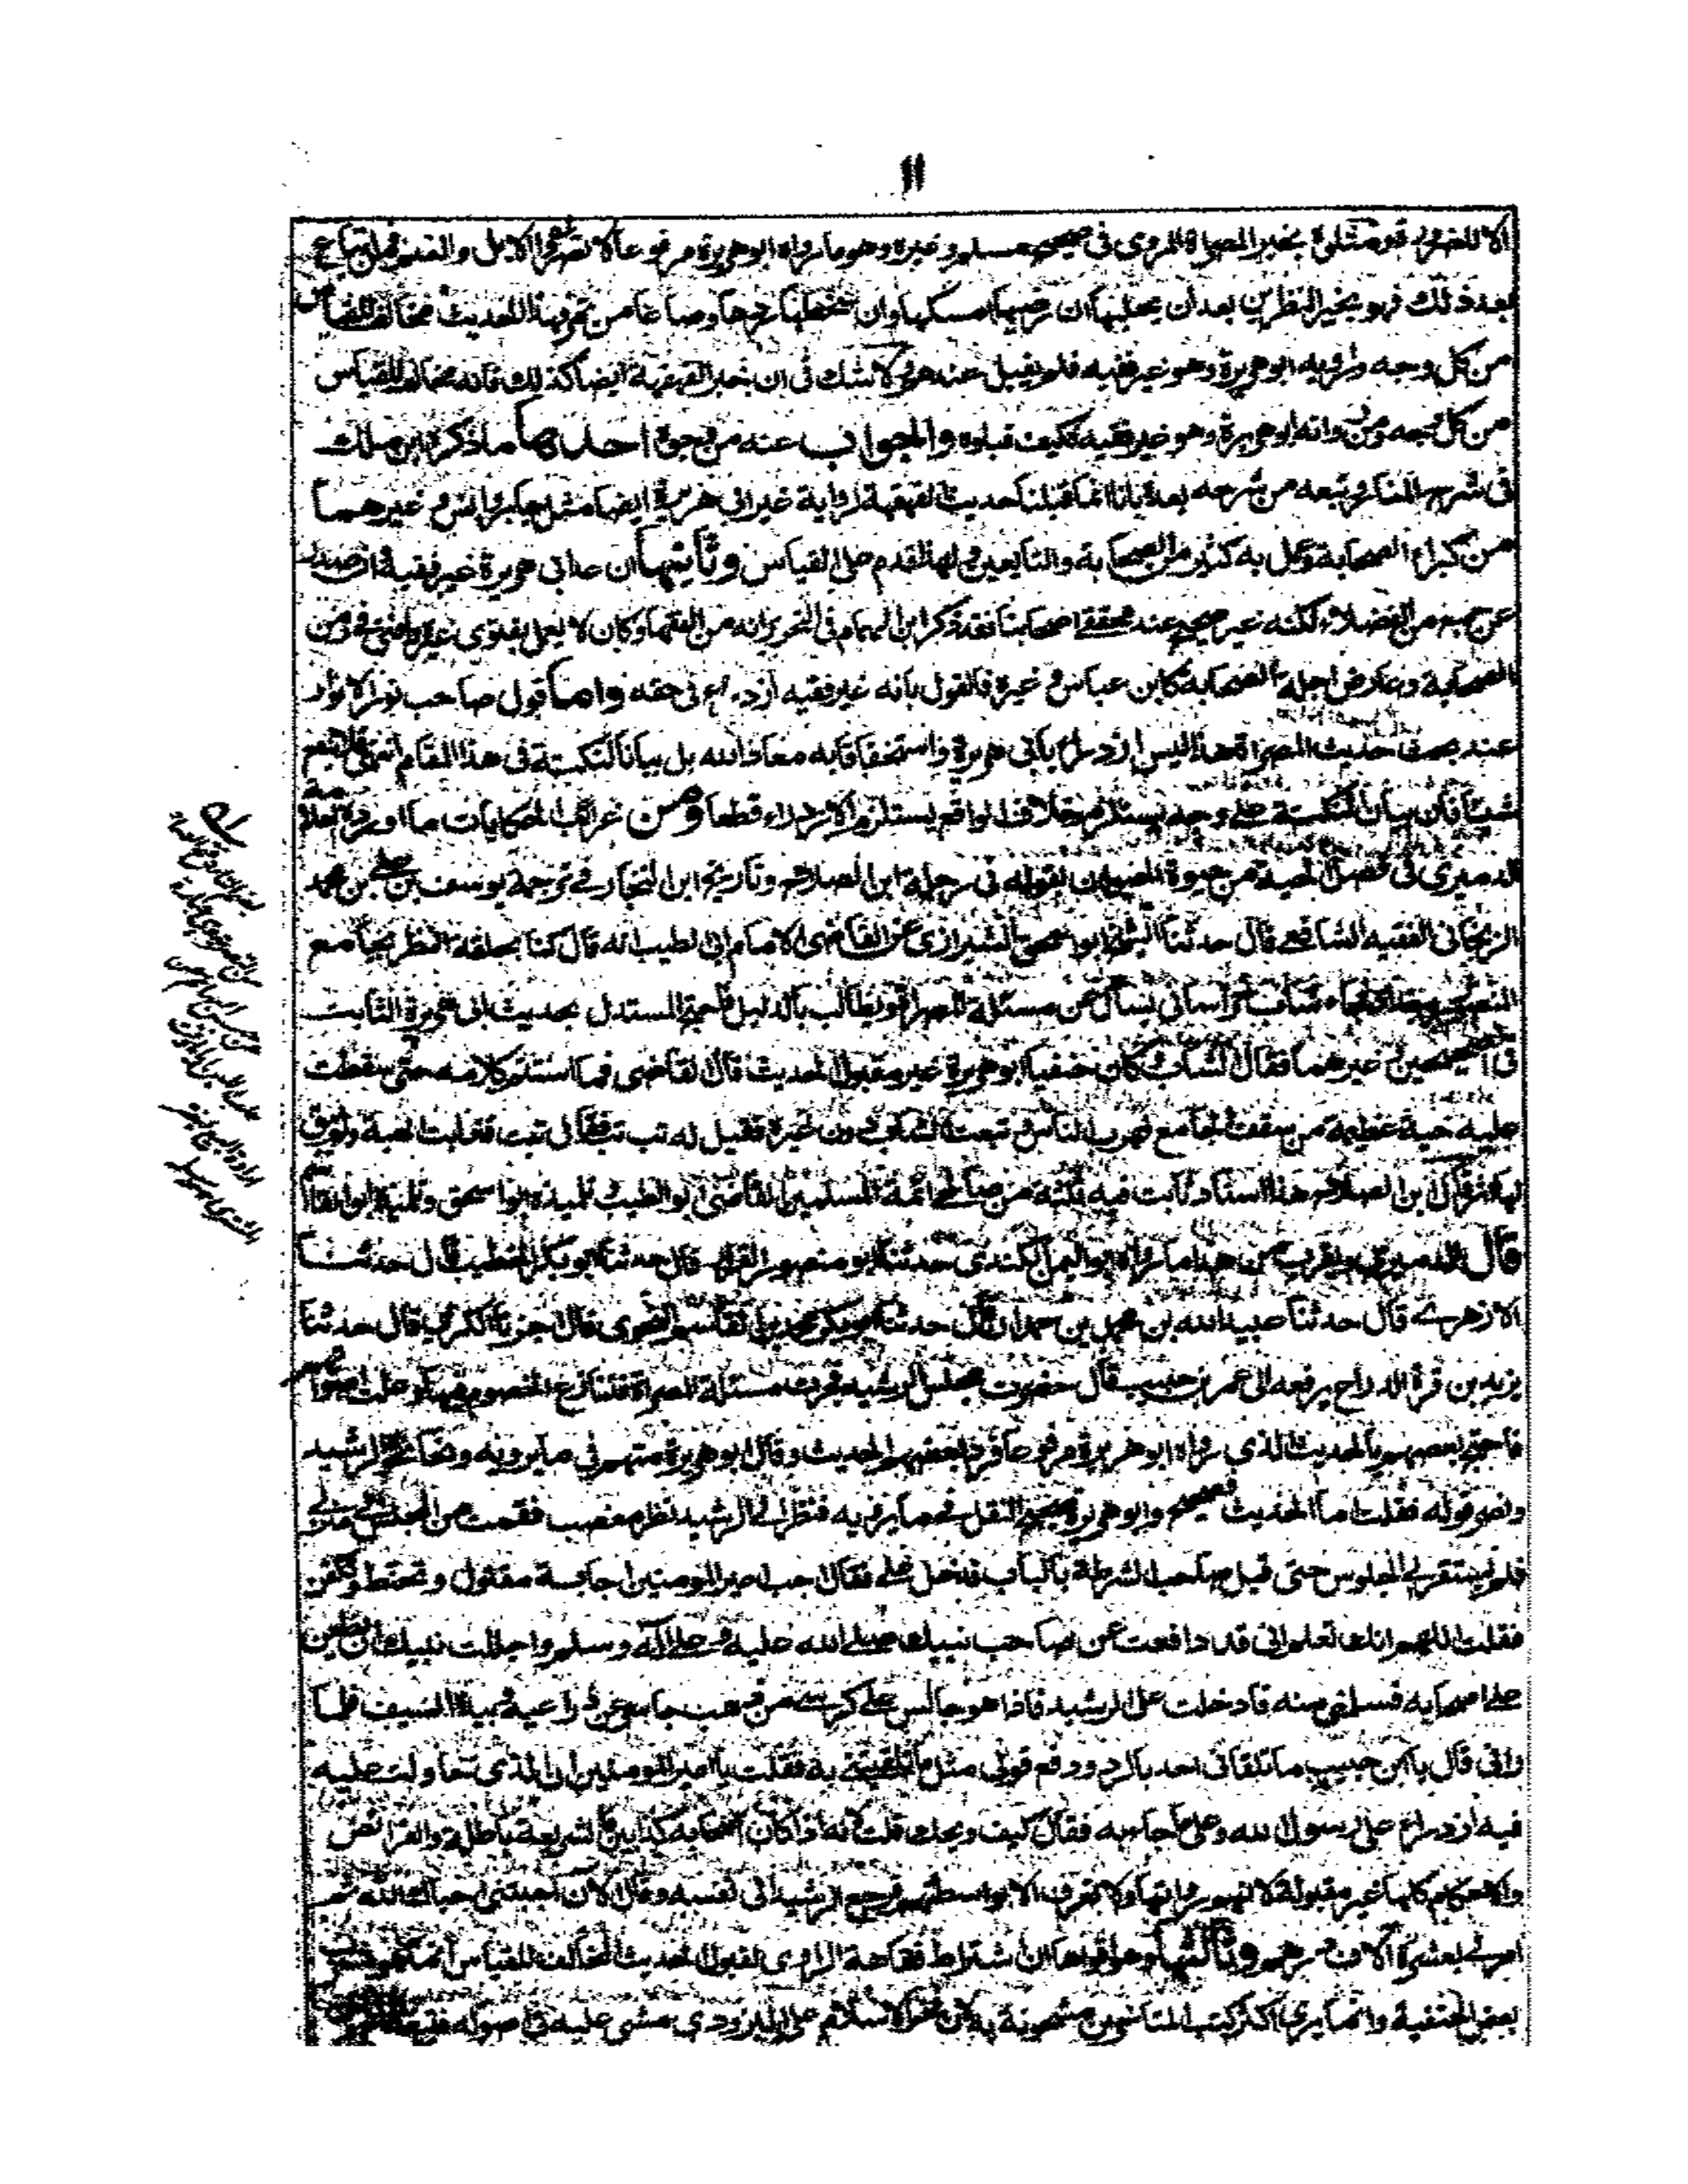 ١١
الا للضرورة ومثلوه بخبر المصراة المروى فى صحيح مسلم وغيره وهو ما رواه ابو هريرة مرفوعا لا تصروا الابل والغنم فمن ابتاع
بعد ذلك فهو بخير النظرين بعد ان يحلبها ان رضيها امسكها وان سخطها ردها وصاعا من تمر فهذا الحديث مخالف للقياس
من كل وجه وراويه ابو هريرة وهو غير فقيه فلم يقبل عندهم ولا شك فى ان خبر القهقهة ايضا كذلك فانه مخالف للقياس
من كل وجه وراويه ابو هريرة وهو غير فقيه فكيف قبلوه والجواب عنه من وجوه احدها ما ذكره ابن ملك
فى شرح المنار وتبعه من شرحه بعده بانا انما قبلنا حديث القهقهة لرواية غير ابى هريرة ايضا مثل جابر وانس وغيرهما
من كبراء الصحابة وعمل به كثير من الصحابة والتابعين ولهذا قدم على القياس وثانيها ان عد ابى هريرة غير فقيه وان صدر
عن جمع من الفضلاء لكنه غير صحيح عند محققى اصحابنا فقد ذكر ابن الهمام فى التحرير انه من الفقهاء وكان لا يعمل بفتوى غيره وافتى فى زمن
الصحابة وعارض اجلة الصحابة كابن عباس وغيره فالقول بانه غير فقيه ازدراء فى حقه واما قول صاحب نور الانوار
عند بحث حديث المصراة هذا ليس ازدراء بابى هريرة واستخفافا به معاذ الله بل بيانا لنكتة فى هذا المقام انتهى فلا ينفع
شيئا فان بيان النكتة على وجه يستلزم خلاف الواقع يستلزم الازدراء قطعا ومن غرائب الحكايات ما اورده العلامة
الدميرى فى فصل الحية من حيوة الحيوان بقوله فى رحلة ابن الصلاح وتاريخ ابن النجار فى ترجمة يوسف بن على بن محمد
الزنجانى الفقيه الشافعى قال حدثنا الشيخ ابو اسحق الشيرازى عن القاضى الامام ابى الطيب انه قال كنا بحلقة النظر بجامع
المنصور ببغداد فجاء شاب خراسانى يسأل عن مسئلة المصراة ويطالب بالدليل فاحتج المستدل بحديث ابى هريرة الثابت
فى الصحيحين وغيرهما فقال الشاب وكان حنفيا ابو هريرة غير مقبول الحديث قال القاضى فما استتم كلامه حتى سقطت
عليه حية عظيمة من سقف الجامع فهرب الناس وتبعت الشاب دون غيره فقيل له تب تب فقال تبت فغابت الحية ولم يبق
لها اثر قال ابن الصلاح هذا اسناد ثابت فيه ثلثة من صالحى ائمة المسلمين القاضى ابو الطيب وتلميذه ابو اسحق وتلميذه ابو القاسم
قال الدميرى ويقرب من هذا ما رواه ابو اليمن الكندى حدثنا ابو منصور القزاز قال حدثنا ابو بكر الخطيب قال حدثنا
الازهرى قال حدثنا عبيد الله بن محمد بن حمدان قال حدثنا ابو بكر محمد بن القاسم النحوى قال اخبرنا الكديمى قال حدثنا
يزيد بن قرة الدراع يرفعه الى عمر بن حبيب قال حضرت مجلس الرشيد فجرت مسئلة المصراة فتنازع الخصوم فيها وعلت اصواتهم
فاحتج بعضهم بالحديث الذى رواه ابو هريرة مرفوعا فرد بعضهم الحديث وقال ابو هريرة متهم فى ما يرويه ونحا نحوه الرشيد
ونصر قوله فقلت اما الحديث فصحيح وابو هريرة صحيح النقل فيما يرويه فنظر الى الرشيد نظر مغضب فقمت من المجلس الى منزلى
فلم يستقر بى الجلوس حتى قيل صاحب الشرطة بالباب فدخل على فقال اجب امير المومنين اجابة مقتول وتحنط وتكفن
فقلت اللهم انك تعلم انى قد دافعت عن صاحب نبيك صلى الله عليه وعلى آله وسلم واجللت نبيك ان يطعن
على اصحابه فسلمنى منه فادخلت على الرشيد فاذا هو جالس على كرسى من ذهب حاسر عن ذراعيه وبيده السيف فلما
رانى قال يا ابن حبيب ما تلقانى احد بالرد ودفع قولى مثل ما تلقيتنى به فقلت يا امير المومنين ان الذى حاولت عليه
فيه ازدراء على رسول الله وعلى ما جاء به فقال كيف ويحك قلت لانه اذا كان اصحابه كذابين فالشريعة باطلة والفرائض
والاحكام كلها غير مقبولة لانهم رواتها ولا تعرف الا بواسطتهم فرجع الرشيد الى نفسه وقال الان احييتنى احياك الله ثم
امر لى بعشرة الاف درهم وثالثها وهو اقواها ان اشتراط فقاهة الراوى لقبول الحديث المخالف للقياس انما هو مذهب
بعض الحنفية وانما يرى اكثر كتب المتاخرين مشحونة به لان فخر الاسلام على البزدوى مشى عليه فى اصوله